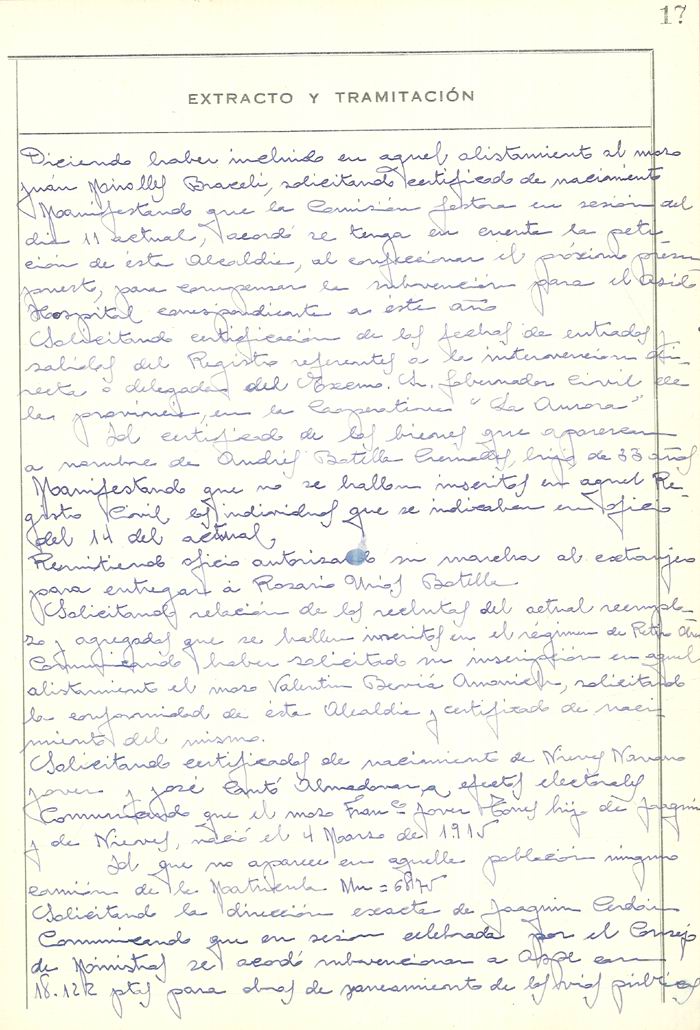 17
EXTRACTO Y TRAMITACIÓN
Diciendo haber incluido en aquel alistamiento al mozo
Juán Miralles Braceli, solicitando certificado de nacimiento
Manifestando que la Comisión Gestora en sesión del
dia 11 actual, acordó se tenga en cuenta la peti-
ción de ésta Alcaldia, al confeccionar el próximo presu
puesto, para compensar la subvención para el Asilo
Hospital correspondiente a éste año
Solicitando certificación de las fechas de entradas y
salidas del Registro referentes a la intervención di-
recta o delegada del Excmo. Sr. Gobernador Civil de
la provincia, en la Cooperativa "La Aurora"
Id certificado de los bienes que aparecen
a nombre de Andrés Botella, hijo de 33 años
Manifestando que no se hallan inscritos en aquel Re-
gistro Civil los individuos que se indicaban en oficio
del 14 del actual,
Remitiendo oficio autorizando su marcha al extranjero
para entregar a Rosario Botella
Solicitando relación de los reclutas del actual reempla-
zo y agregados que se hallen inscritos en el régimen de Retiro
Comunicando haber solicitado su inscripción en aquel
alistamiento el mozo Valentin Beviá, solicitando
la conformidad de ésta Alcaldia y certificado de naci-
miento del mismo.
Solicitando certificados de nacimiento de Nieves Navarro
Jover y José Cantó Almodovar, a efectos electorales
Comunicando que el mozo Fran.co Jover Torres hijo de Joaquin
y de Nieves, nació el 4 Marzo de 1915
Id que no aparece en aquella población ninguno
camión de la Matricula Mu=6875
Solicitando la dirección exacta de Joaquin Cerdán
Comunicando que en sesion celebrada por el Consejo
de Ministros se acordó subvencionar a Aspe con
18.122 ptas para obras de saneamiento de las vias públicas